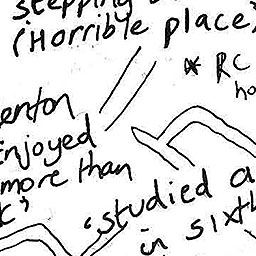 stepping
(Horrible place)
* RC
ho
enton
enjoyed
more than
k'
'studied a
in sixth